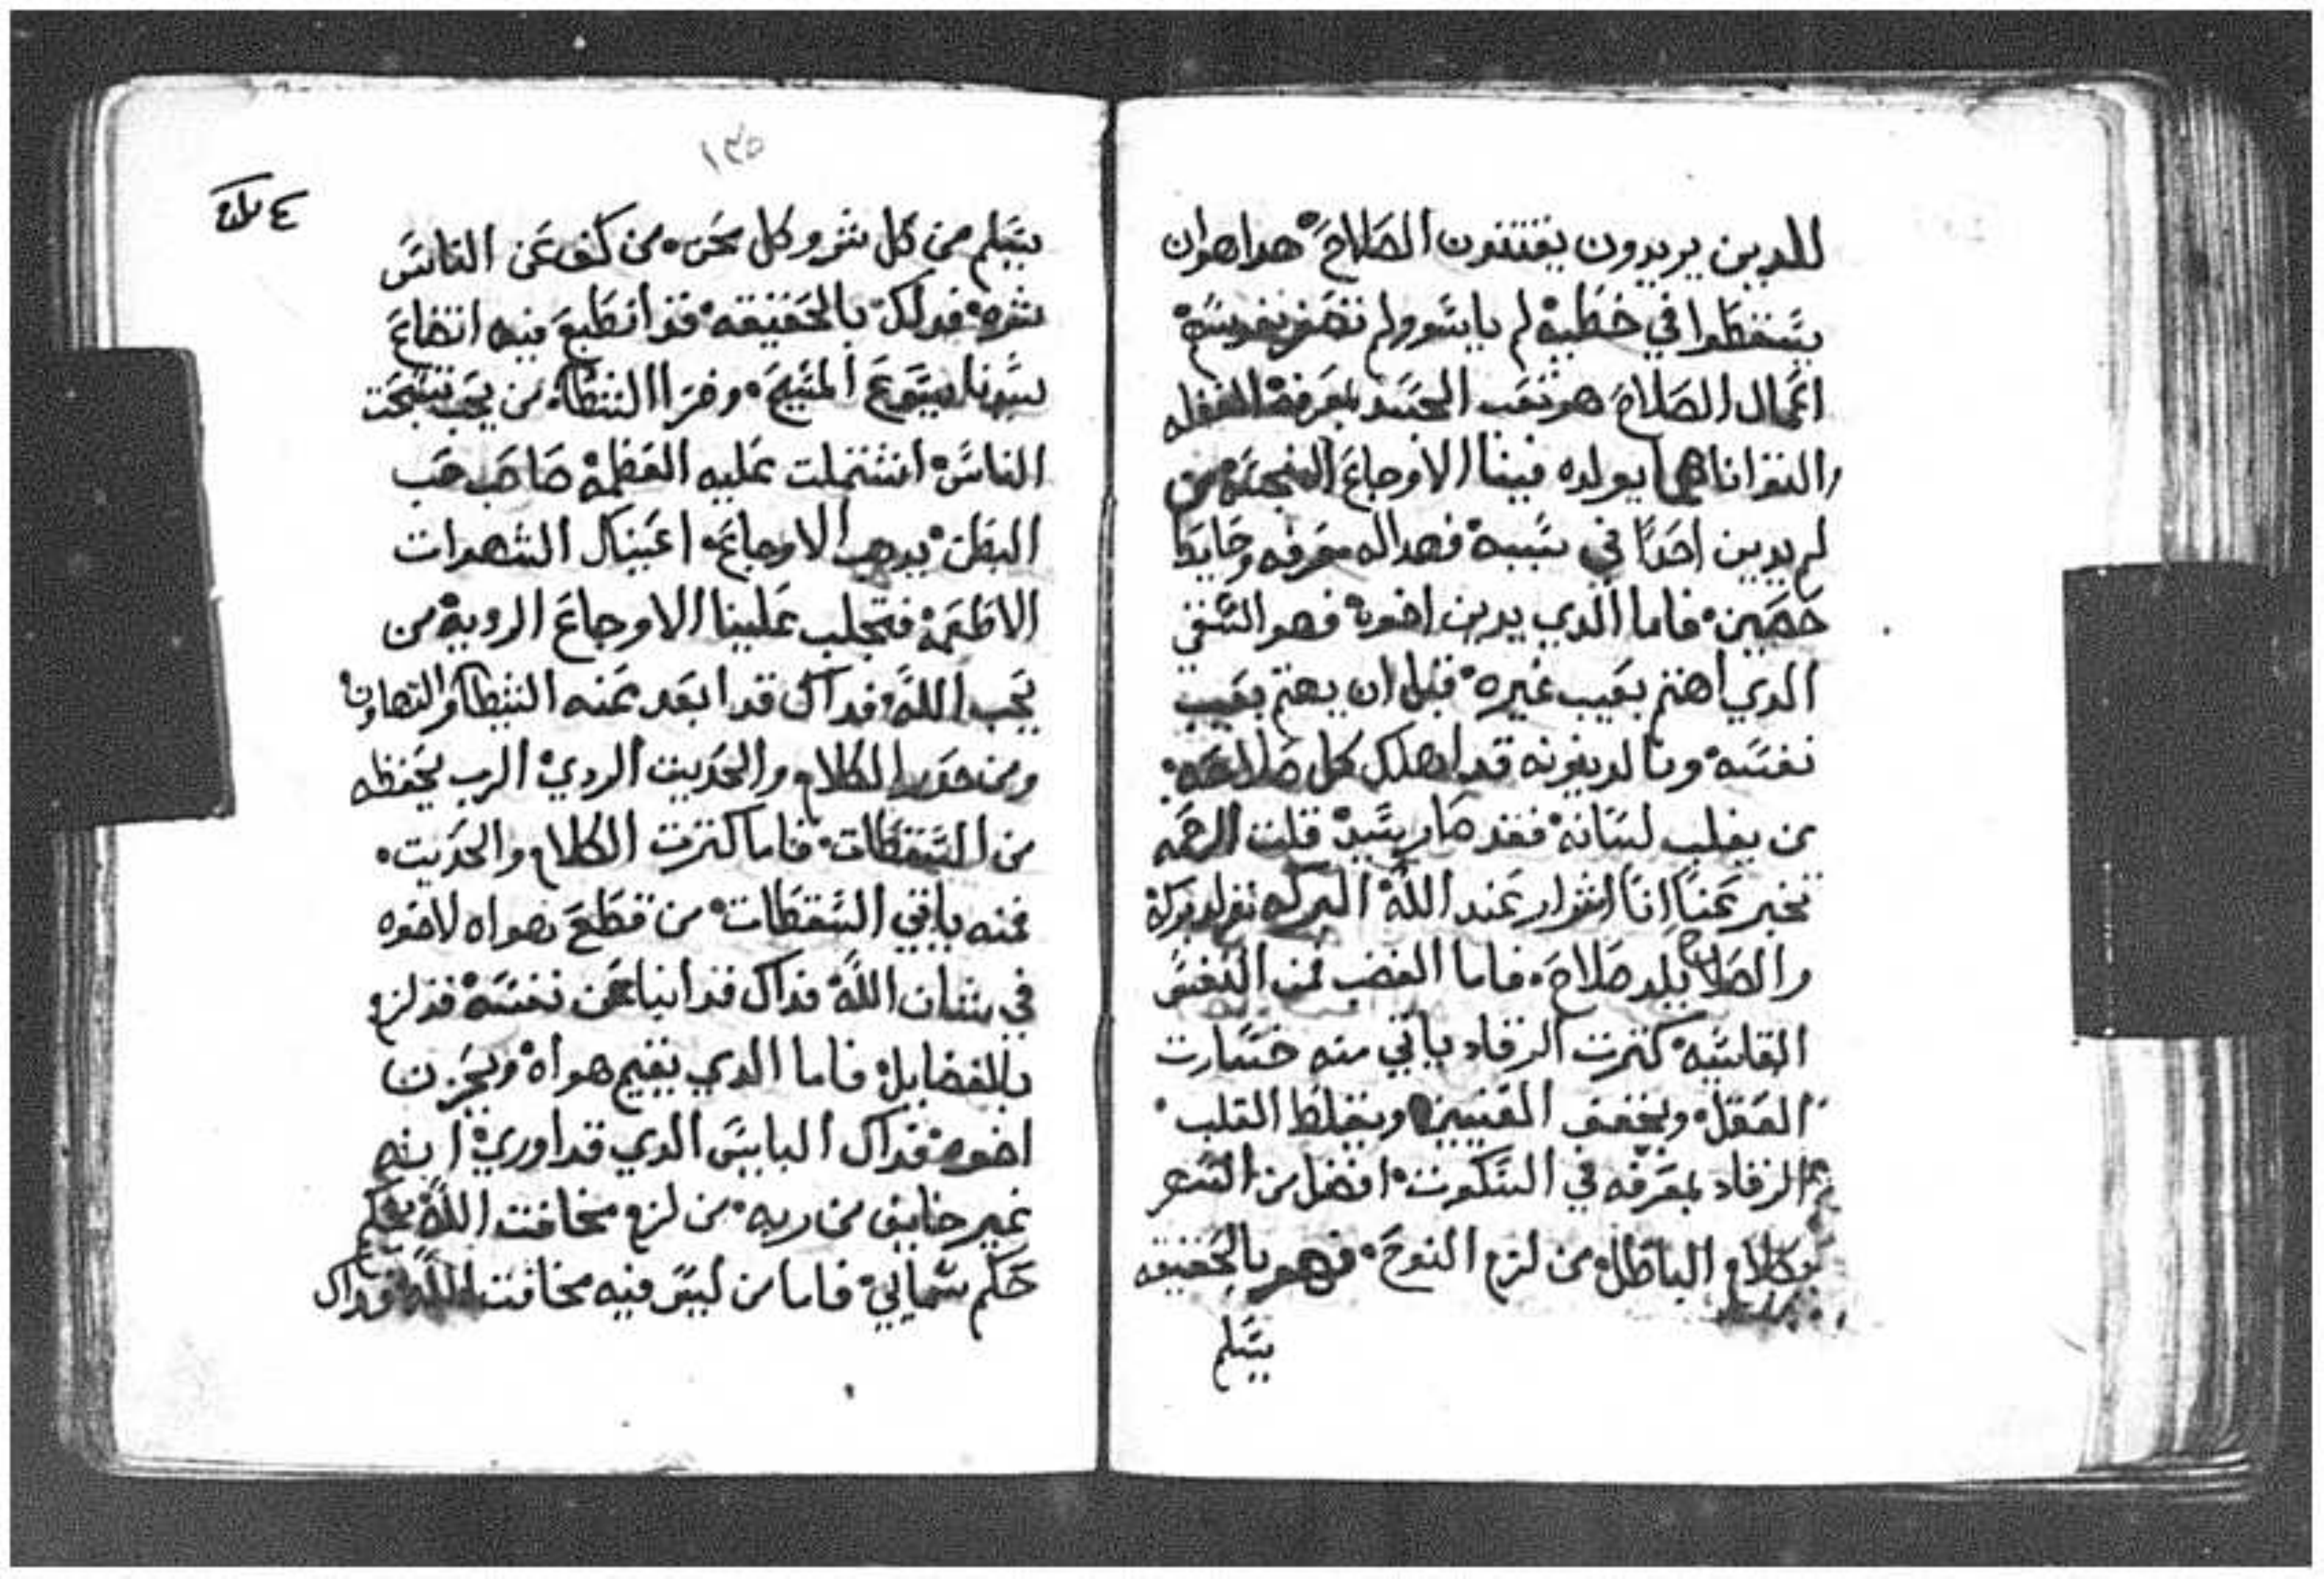 للدين يريدون يقتنون الصلاح هدا هو ان
يسقطوا في خطية لم يايسو ولم تصغر نفوسهم
اعمال الصلاح هو تعب الجسد بمعرفة الغفله
والتوانا هما يولده فينا الاوجاع من
لم يدين احدًا في سببه فهدا له معرفه وحايط
حصين فاما الدي يدين اخوه فهو الشقي
الدي اهتم بعيب غيره قبل ان يهتم بعيب
نفسه وبالدينونه قد اهلك كل صلاحه
من يغلب لسانه فقد صار سيد قلت الرحمه
تخبر عنا انا اشرار عند الله البركه تولد بركة
والصلاح يلد صلاح فاما الغضب فمن النفس
القاسيه كثرت الرقاد ياتي منه خسارت
العقل ويجفف العينين ويغلظ القلب
الرقاد بمعرفه في السكوت افضل من السهر
وكلام الباطل من لزم النوح فهو بالحقيقه
يسلم
١٣٥
يسلم من كل شر وكل محن من كف عن الناس
شره فداك بالحقيقه قد انطبع فيه اتضاع
سيدنا يسوع المسيح وفرا الشيطان من يحب تسبحت
الناس اشتملت عليه العظمه صاحب حب
البطن يدهب الاوجاع اعنيك الشهوات
الاطعمة فتجلب علينا الاوجاع الرديه من
يحب الله فداك قد ابعد عنه الشيطان والتهاون
ومن حدر الكلام والحديت الردي الرب يحفظه
من السقطات فاما كثرت الكلام والحديت
فمنه ياتي السقطات من قطع هواه لاخوه
في شان الله فداك قد انبا عن نفسه قد لزم
بالفضايل فاما الدي يقيم هواه ويحزن
اخوه فداك البايس الدي قد اوري انه
غير خايف من ربه من لزم مخافت الله بحكم
حكم سمايي فاما من ليس فيه مخافت الله فداك